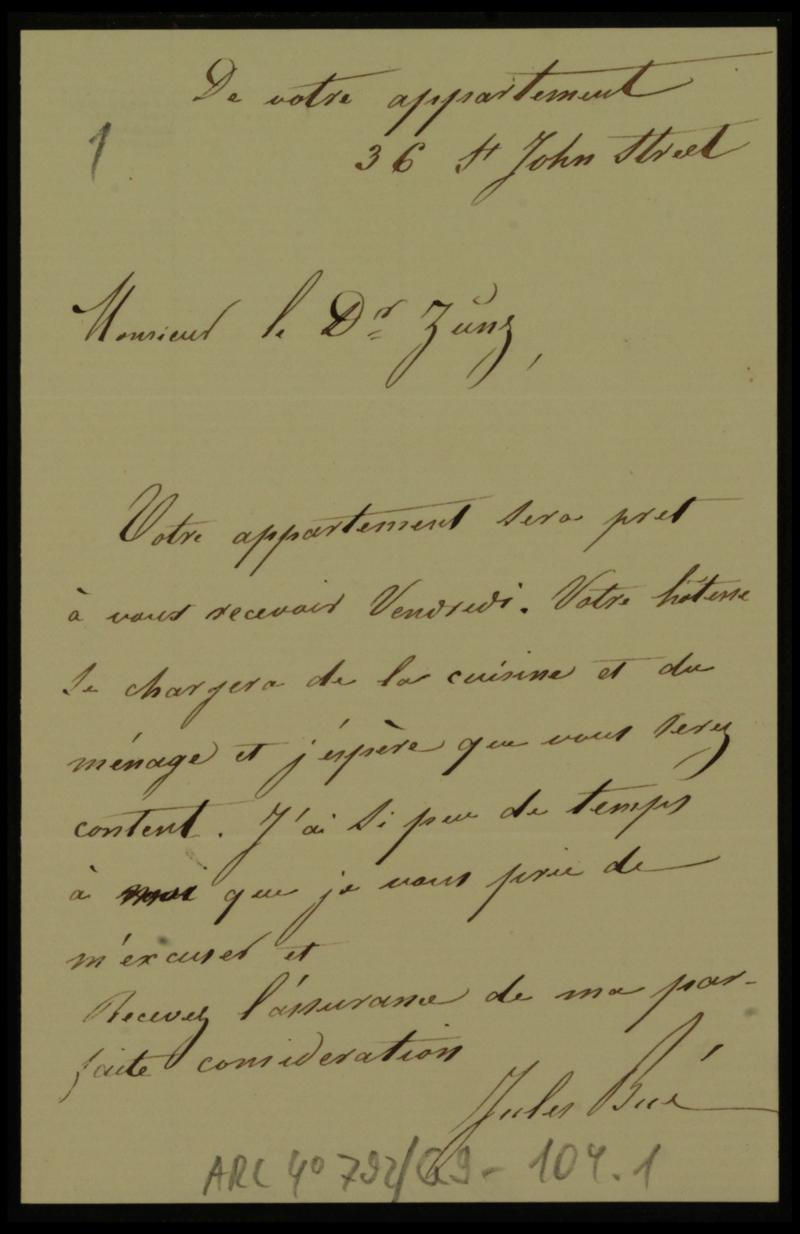 De votre appartement
1
36 St John Street
Monsieur le Dr Zunz,
Votre appartement sera pret
à vous recevoir Vendredi. Votre hôtesse
se chargera de la cuisine et du
ménage et j'éspère que vous serez
content. J'ai si peu de temps
à moi que je vous prie de
m'excuser et
Recevez l'assurance de ma par-
faite consideration
Jules Bué
ARC 4o 792/G9-104.1